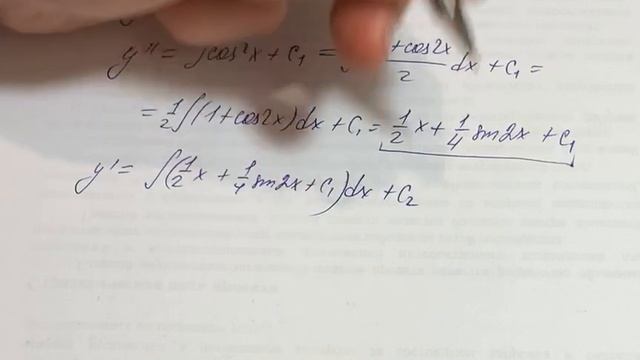 y'' = ∫cos²x + C₁ = +cos2x/2 dx + C₁ =
= 1/2 ∫(1+cos2x)dx + C₁ = 1/2 x + 1/4 sin2x + C₁
y' = ∫(1/2 x + 1/4 sin2x + C₁)dx + C₂